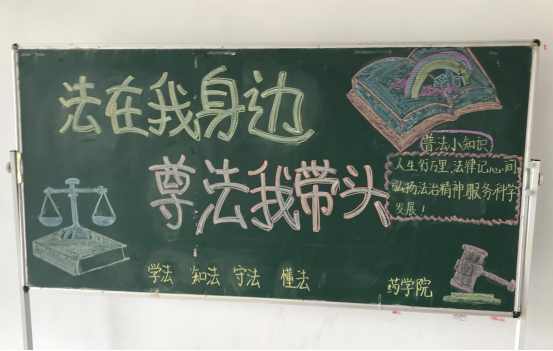 法在我身边
尊法我带头
普法小知识
人生行万里,法律记心间,
弘扬法治精神,服务科学
发展!
学法 知法 守法 懂法
药学院